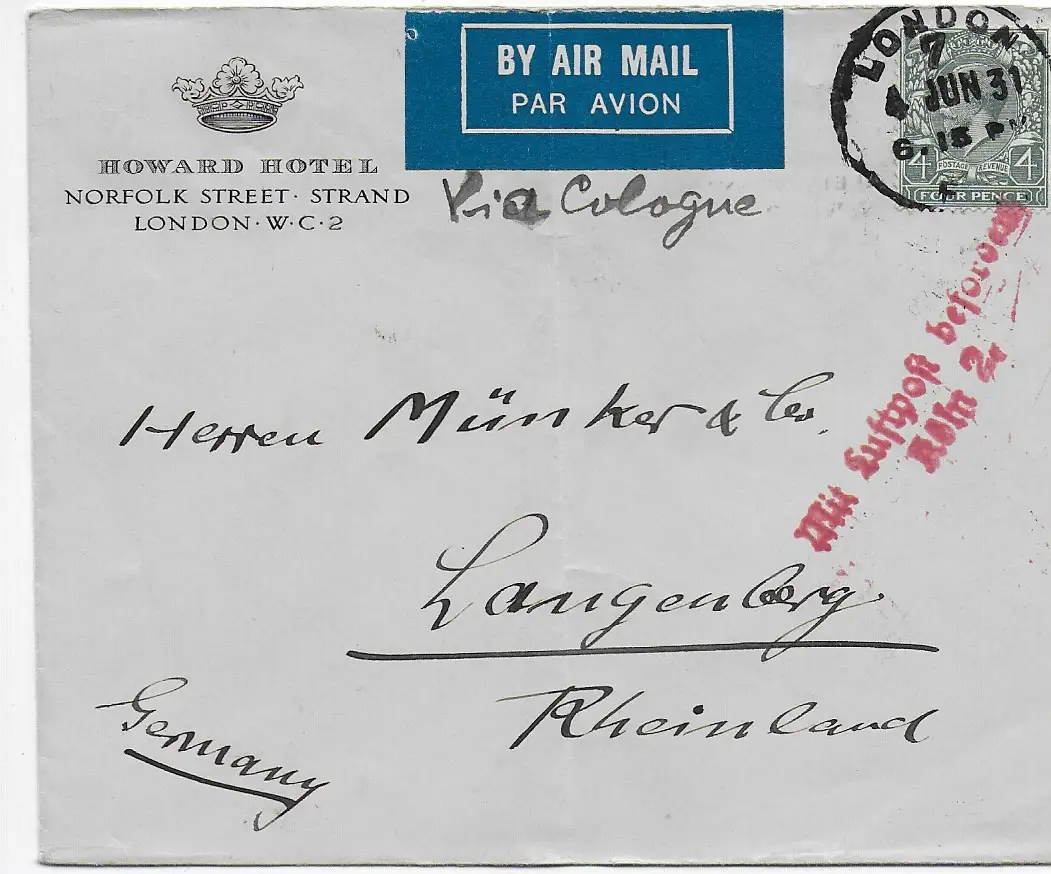 BY AIR MAIL
PAR AVION
HOWARD HOTEL
NORFOLK STREET · STRAND
LONDON · W · C · 2
Via Cologne
LONDON
7
4 JUN 31
6.15 PM
4 POSTAGE REVENUE 4
FOUR PENCE
Mit Luftpost befördert
Köln 2
Herren Münker & Co.
Langenberg
Rheinland
Germany